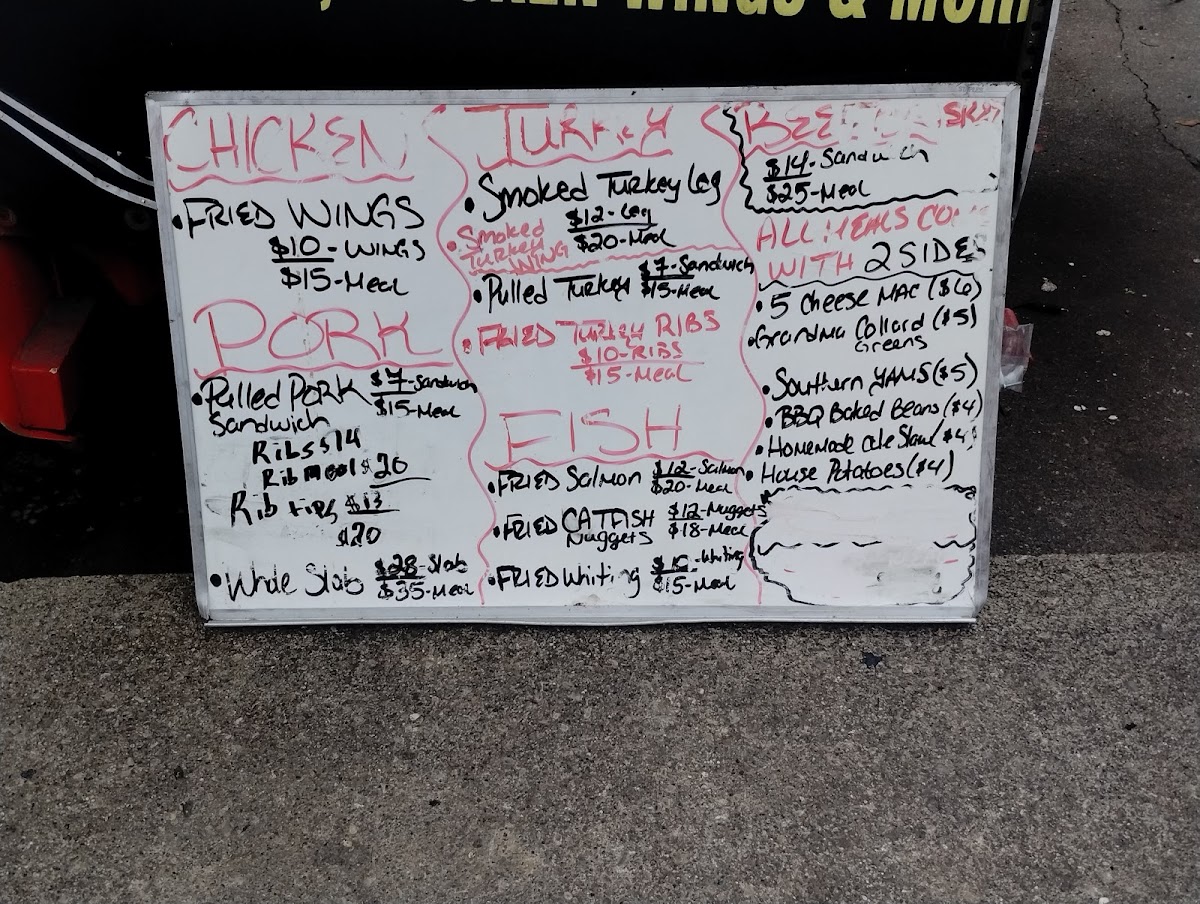 WINGS & MORE
CHICKEN
• FRIED WINGS
$10 - WINGS
$15 - Meal
PORK
• Pulled PORK $7 - Sandwich
Sandwich $15 - Meal
Ribs $14
Rib Meal $20
Rib Tips $13
$20
• Whole Slab $28 - Slab
$35 - Meal
TURKEY
• Smoked Turkey Leg
$12 - Leg
$20 - Meal
• Smoked
TURKEY
WING
• Pulled Turkey $7 - Sandwich
$15 - Meal
• FRIED TURKEY RIBS
$10 - RIBS
$15 - Meal
FISH
• FRIED Salmon $12 - Salmon
$20 - Meal
• FRIED CATFISH $12 - Nuggets
Nuggets $18 - Meal
• FRIED Whiting $10 - Whiting
$15 - Meal
BEEF
$14 - Sandwich
$25 - Meal
ALL MEALS
WITH 2 SIDES
• 5 Cheese MAC ($6)
• Grandma Collard ($5)
Greens
• Southern YAMS ($5)
• BBQ Baked Beans ($4)
• Homemade Cole Slaw ($4)
• House Potatoes ($4)